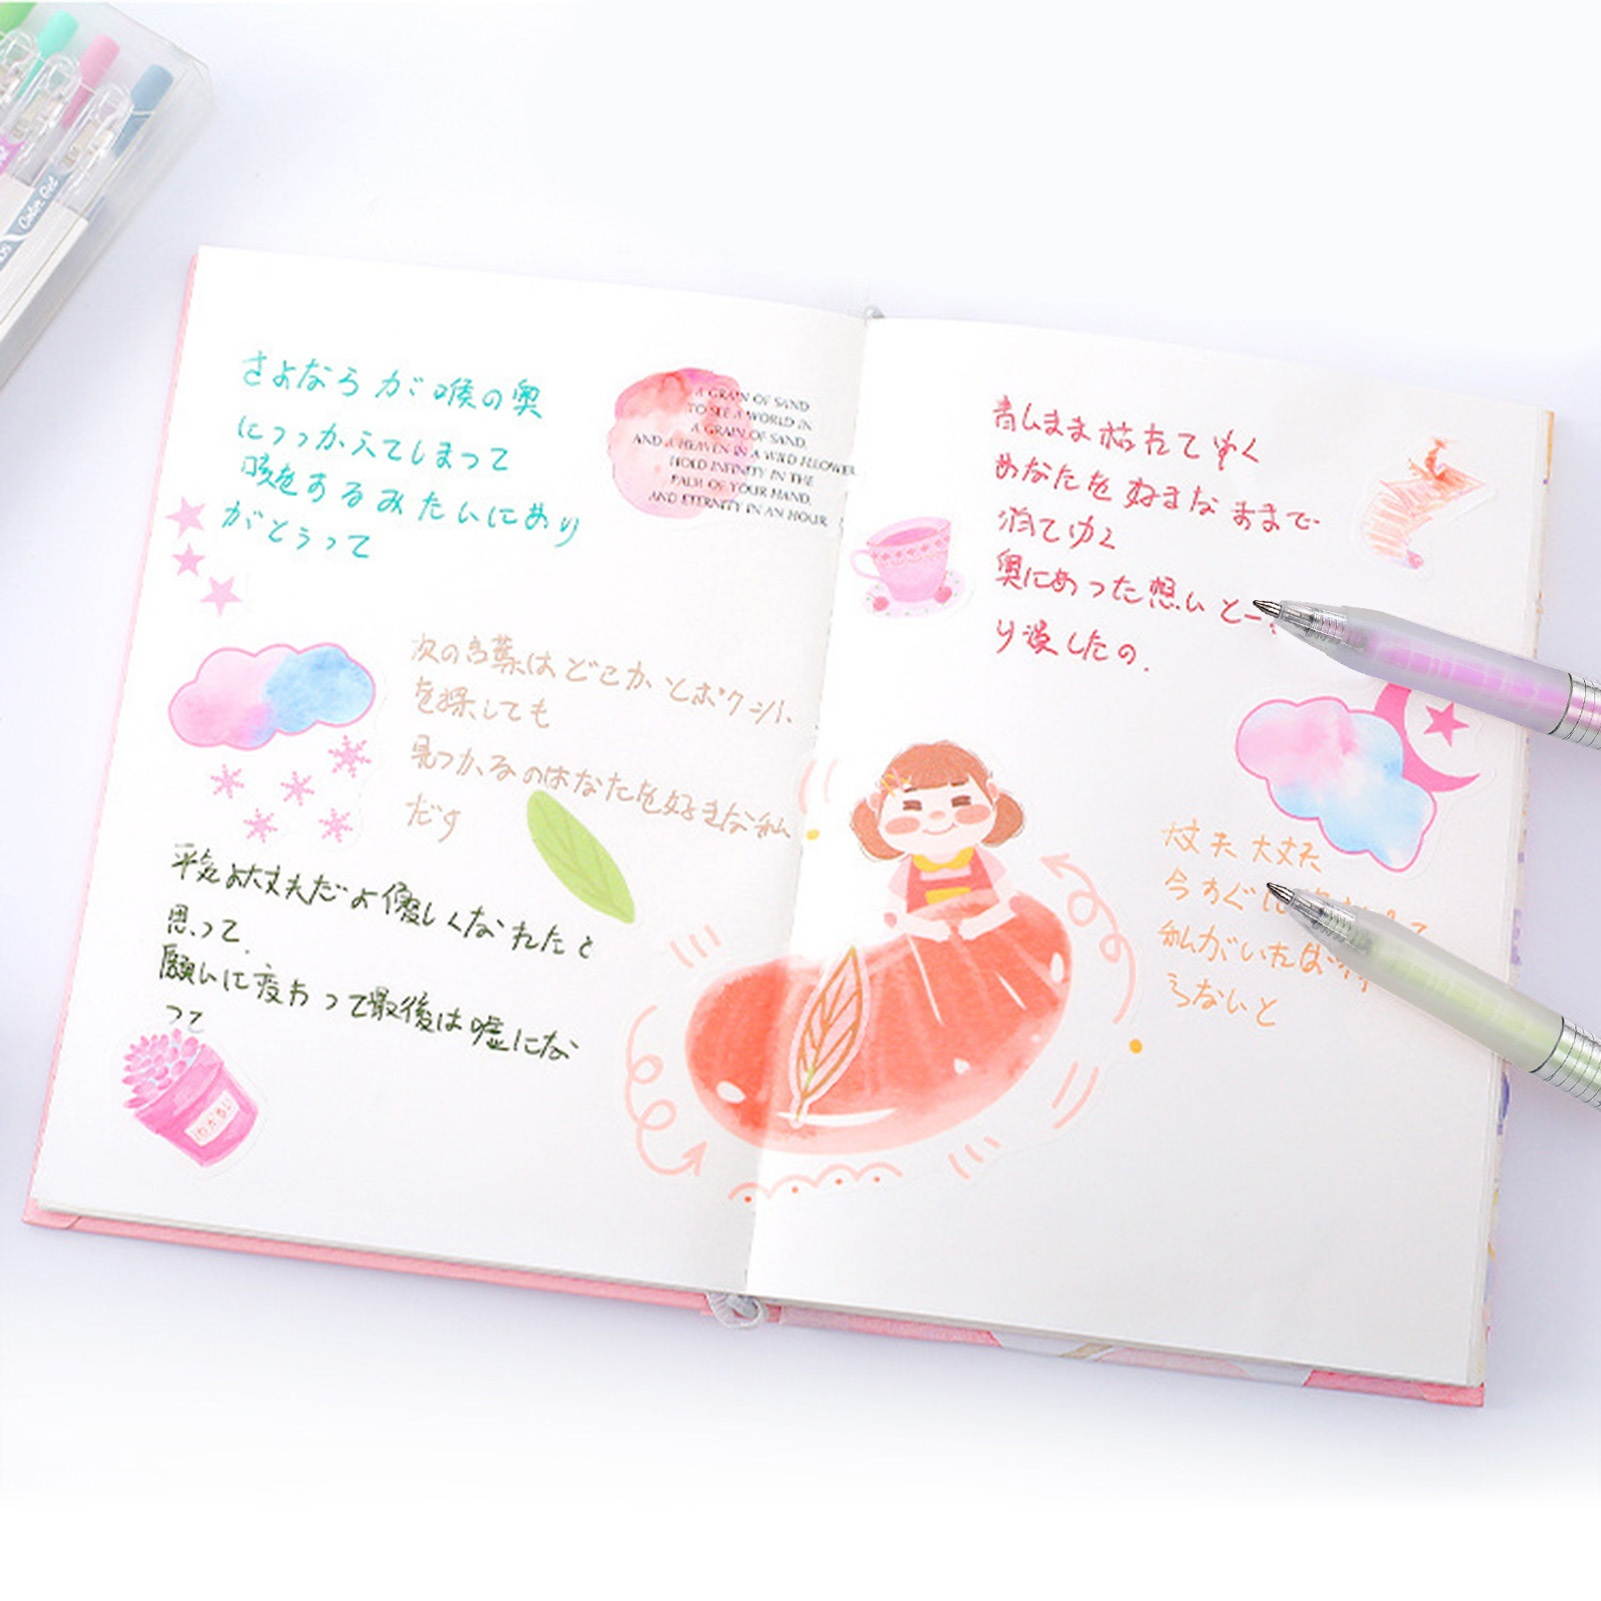 さよならが喉の奥
につっかえてしまって
咳をあるみたいにあり
がとうって
A GRAIN OF SAND
TO SEE A WORLD IN
A GRAIN OF SAND,
AND A HEAVEN IN A WILD FLLOWER
HOLD INFINITY IN THE
PALM OF YOUR HAND,
AND ETERNITY IN AN HOUR
次の言葉はどこかとポケット
を探しても
見つかるのはなたを好きな私
だす
平気よ大丈夫だよ優しくなれたと
思って
願いに変わって最後は嘘にな
って
青いまま枯れてゆく
あなたを好きなままで
消てゆく
奥にあった想いと
り残したの.
丈夫 大丈夫
今すぐに
私がいれば
らないと
Color Gel